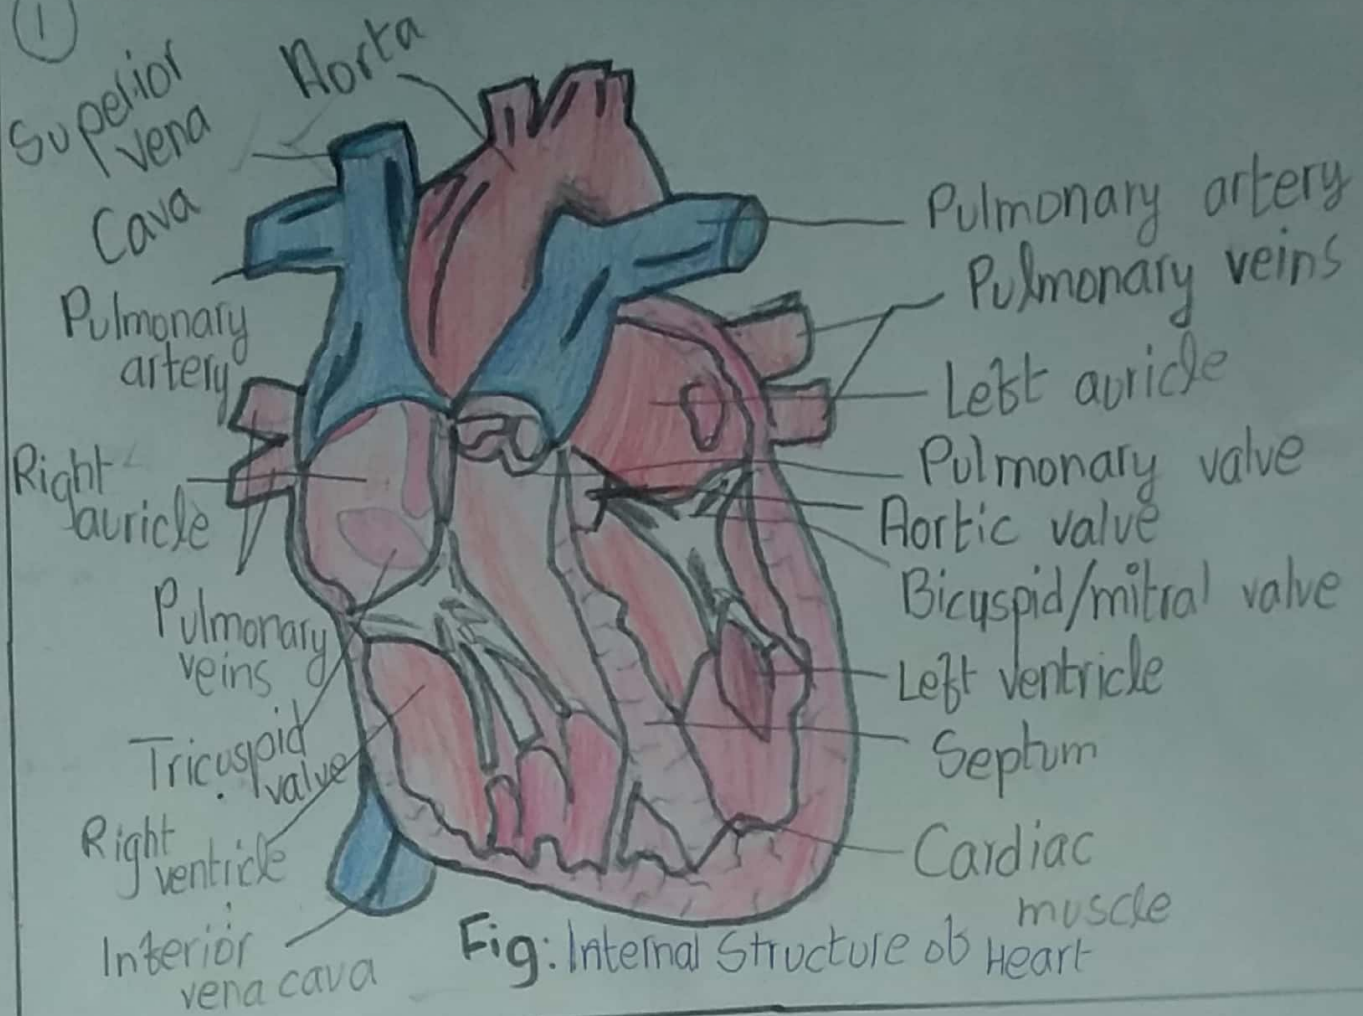 1
Superior
vena
Cava
Aorta
Pulmonary
artery
Right
auricle
Pulmonary
veins
Tricuspid
valve
Right
ventricle
Interior
vena cava
Pulmonary artery
Pulmonary veins
Left auricle
Pulmonary valve
Aortic valve
Bicuspid/mitral valve
Left ventricle
Septum
Cardiac
muscle
Fig: Internal Structure of Heart